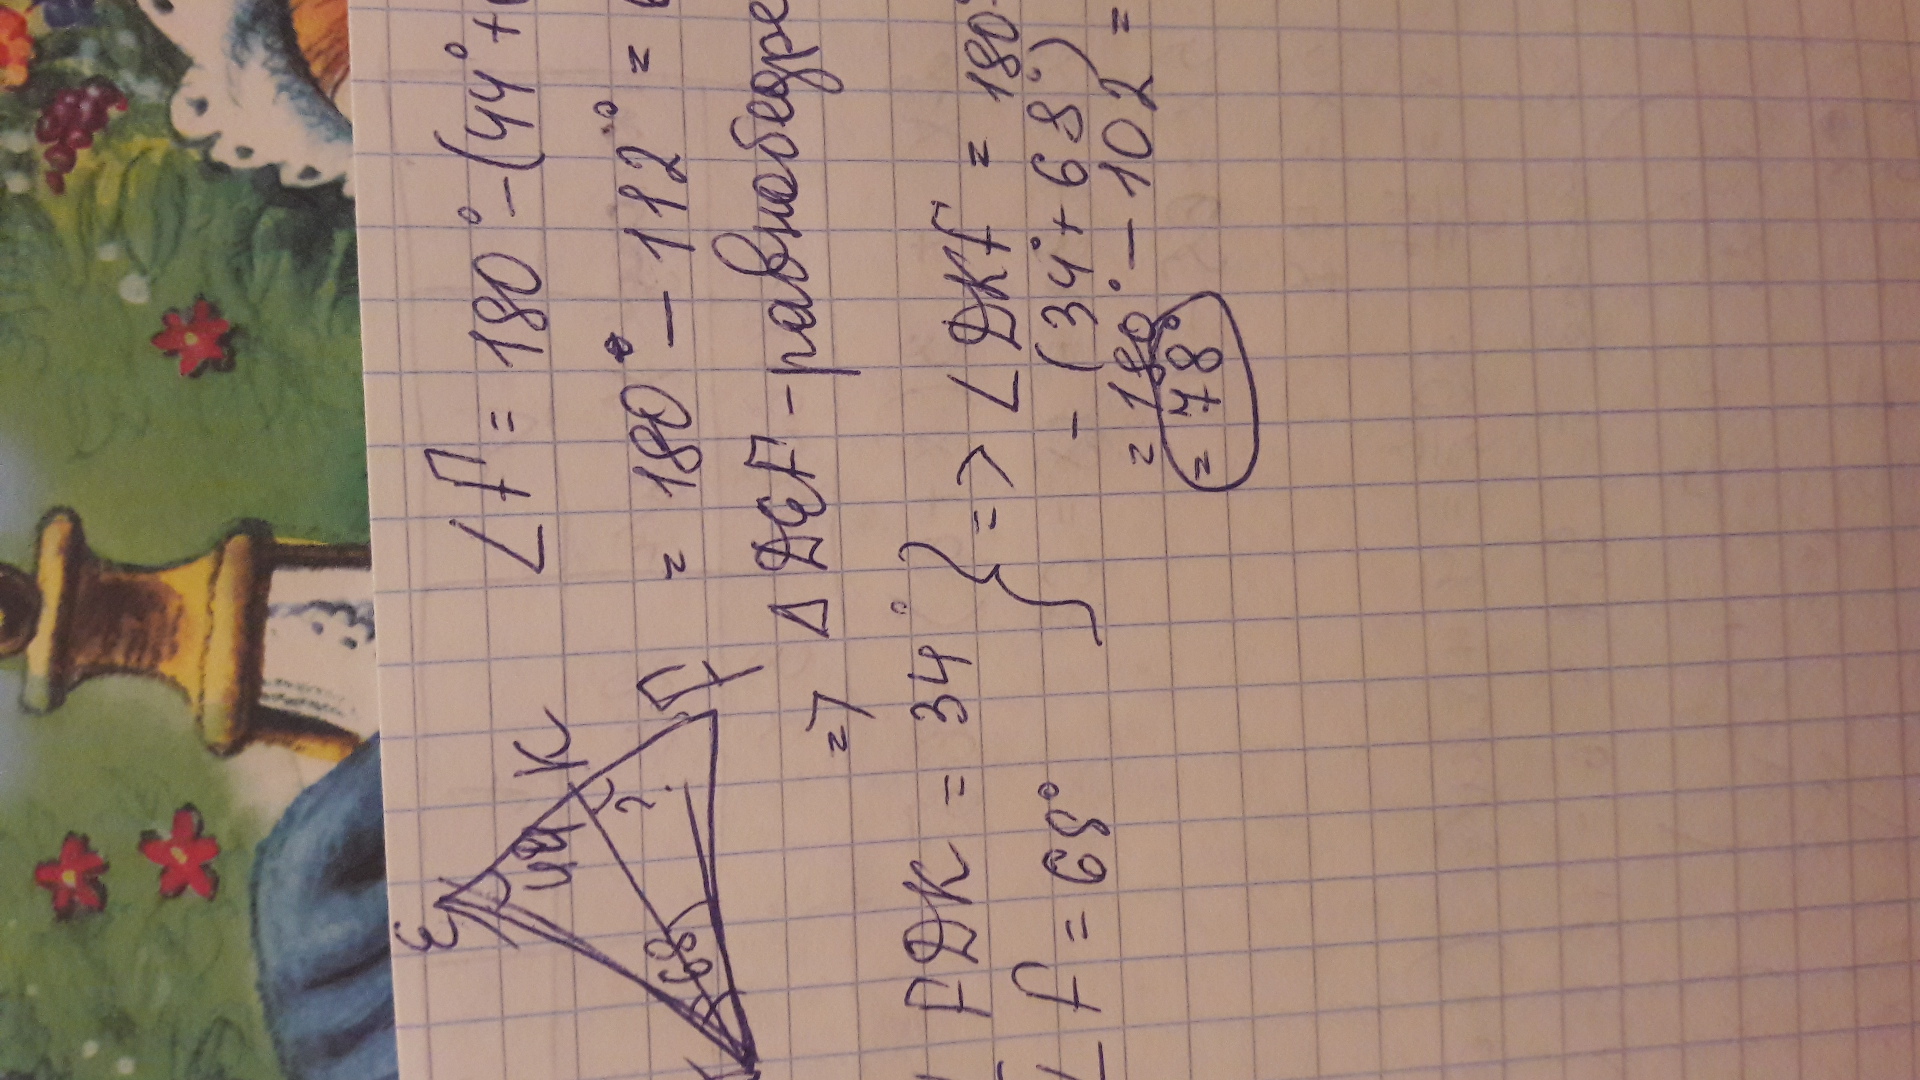 Е
К
44
?
68
F
∠F = 180° - (44° +
= 180° - 112° =
=> Δ DEF - равнобедре
FDK = 34°
∠F = 68°
} => ∠DKF = 180°
- (34° + 68°)
= 180° - 102 =
= 78°